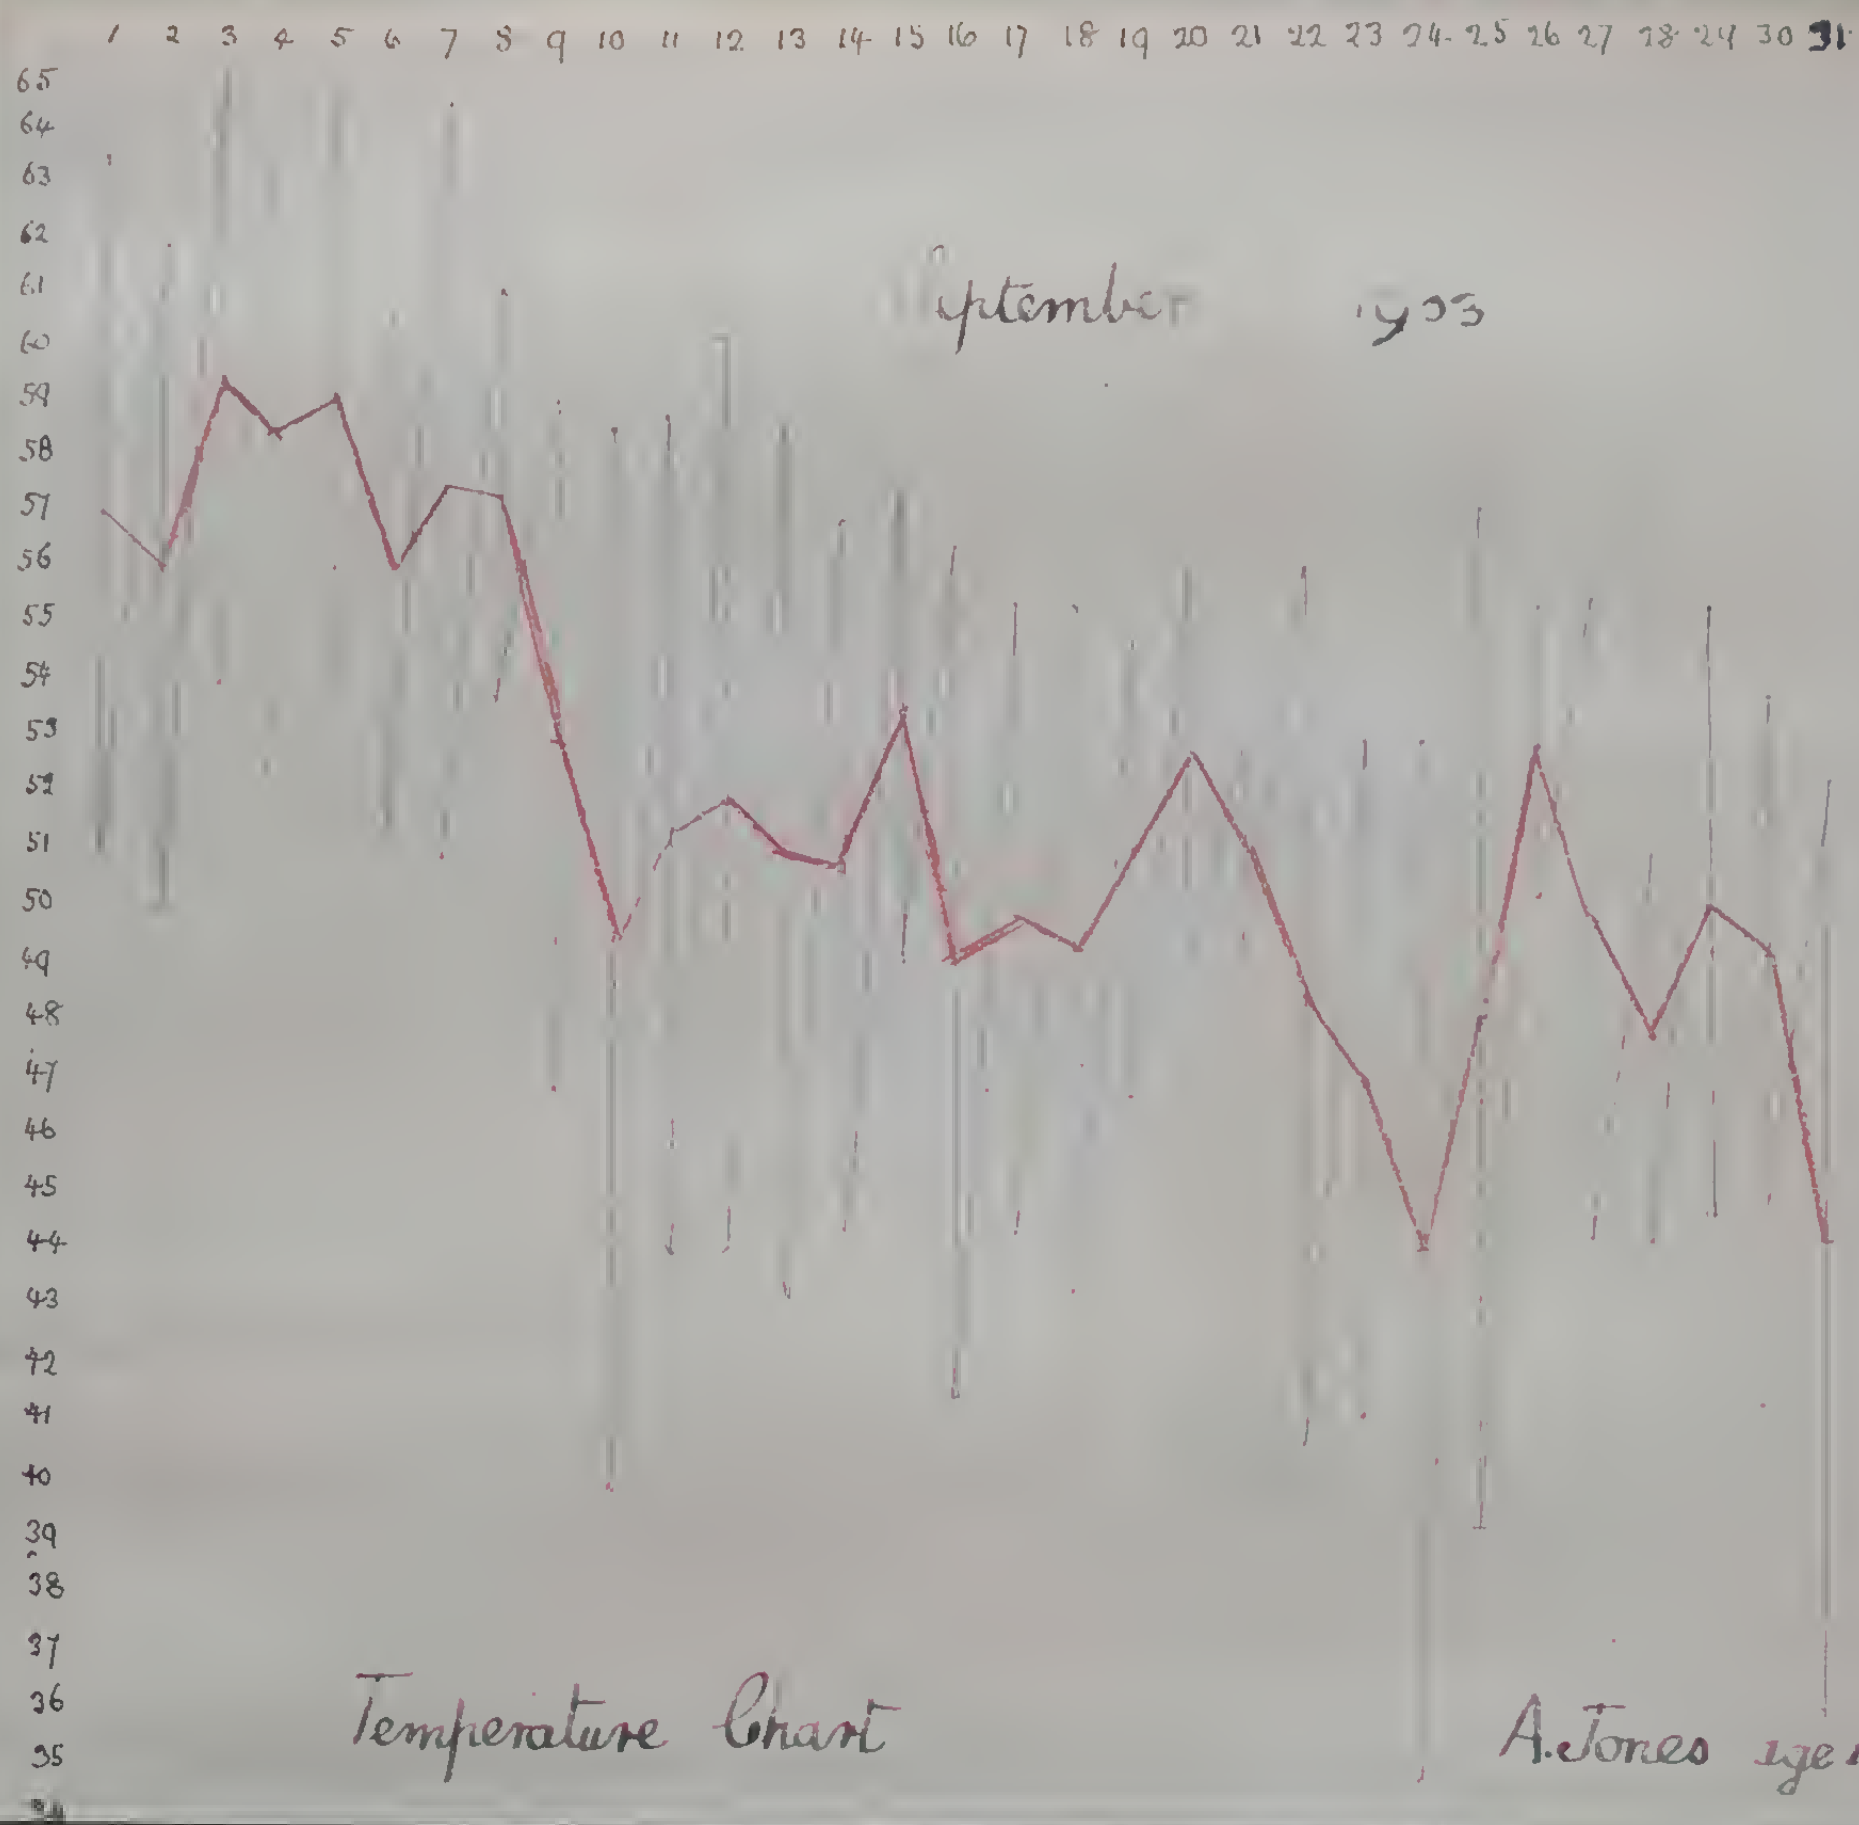 1 2 3 4 5 6 7 8 9 10 11 12 13 14 15 16 17 18 19 20 21 22 23 24 25 26 27 28 29 30 31
65
64
63
62
61
60
59
58
57
56
55
54
53
52
51
50
49
48
47
46
45
44
43
42
41
40
39
38
37
36
35
34
eptember
Temperature Chart
A. Jones age